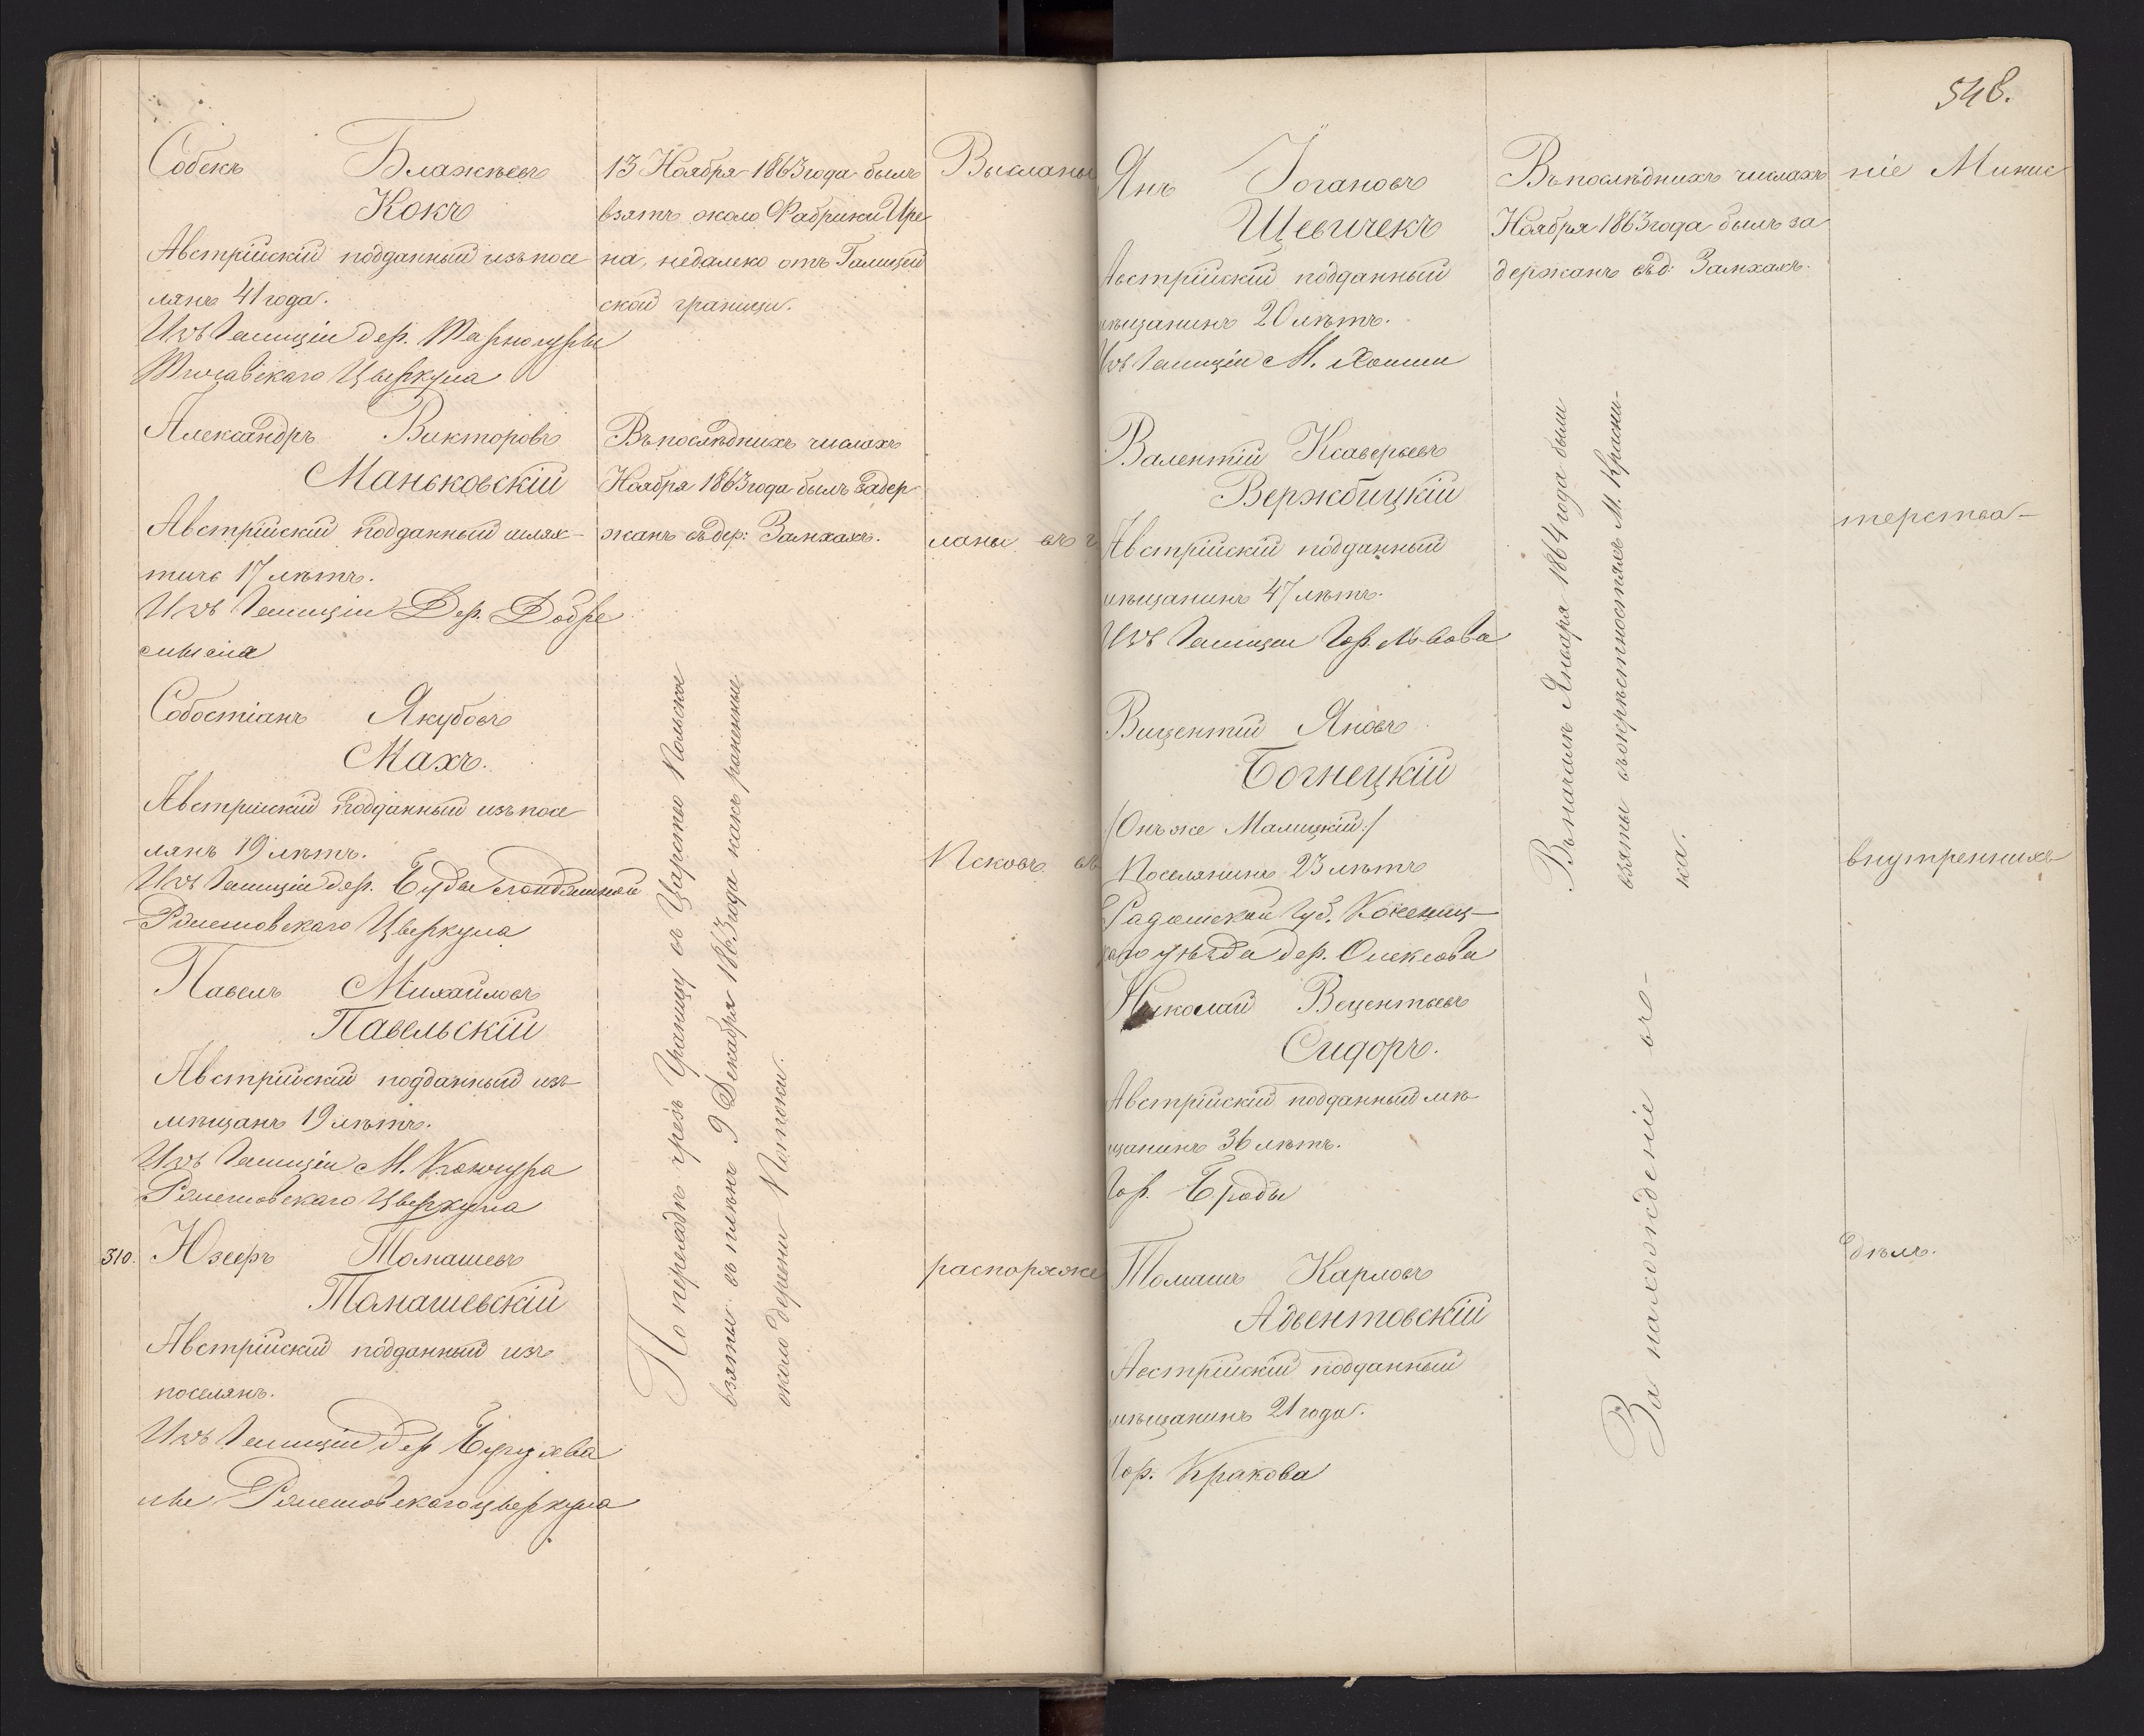 Собекъ Блажѣевъ
Кокъ
Австрійскій подданный изъ посе
лянъ 41 года.
Изъ Галиціи дер. Тарногуры
Цыркула
Александръ Викторовъ
Маньковскій
Австрійскій подданный шлях-
тичъ 17 лѣтъ.
Изъ Галиціи Дер. Добре
Собостіанъ Якубовъ
Махъ.
Австрійскій подданный изъ посе
лянъ 19 лѣтъ.
Изъ Галиціи дер. Буды
Цыркула
Павелъ Михайловъ
Павельскій
Австрійскій подданный изъ
мѣщанъ 19 лѣтъ.
Изъ Галиціи М.
Цыркула
310. Юзефъ Томашевъ
Томашевскій
Австрійскій подданный изъ
поселянъ.
Изъ Галиціи дер
цыркула
13 Ноября 1863 года былъ
взятъ около Фабрики Ире
на, недалеко отъ Галицій
ской границы.
Въ послѣднихъ числахъ
Ноября 1863 года былъ задер
жанъ въ дер: Залихахъ.
По переходѣ чрезъ Границу въ Царство Польское
взяты въ плѣнъ 9 Декабря 1863 года какъ раненные
около деревни Потоки.
Высланы
ланы въ г
Псковъ въ
распоряже
548.
Янъ Іогановъ
Щевичекъ
Австрійскій подданный
мѣщанинъ 20 лѣтъ.
Изъ Галиціи М.
Валентій Ксаверьевъ
Вержбицкій
Австрійскій подданный
мѣщанинъ 47 лѣтъ.
Изъ Галиціи Гор. Львова
Вицентій Яновъ
Богнецкій
/Онъ же Малицкій:/
Поселянинъ 23 лѣтъ
Радомской Губ. Козениц-
каго уѣзда дер. Олексова
Николай Вецентьевъ
Сидоръ.
Австрійскій подданный мѣ
щанинъ 36 лѣтъ.
Гор. Броды
Томашъ Карловъ
Адвентовскій
Австрійскій подданный
мѣщанинъ 21 года.
Гор. Кракова
Въ послѣднихъ числахъ
Ноября 1863 года былъ за
держанъ въ д: Залихахъ.
Въ началѣ Января 1864 года были
взяты въ окрѣстностяхъ М. Красни-
ка.
За нахожденіе его-
ніе Минис
терства-
внутреннихъ
дѣлъ.